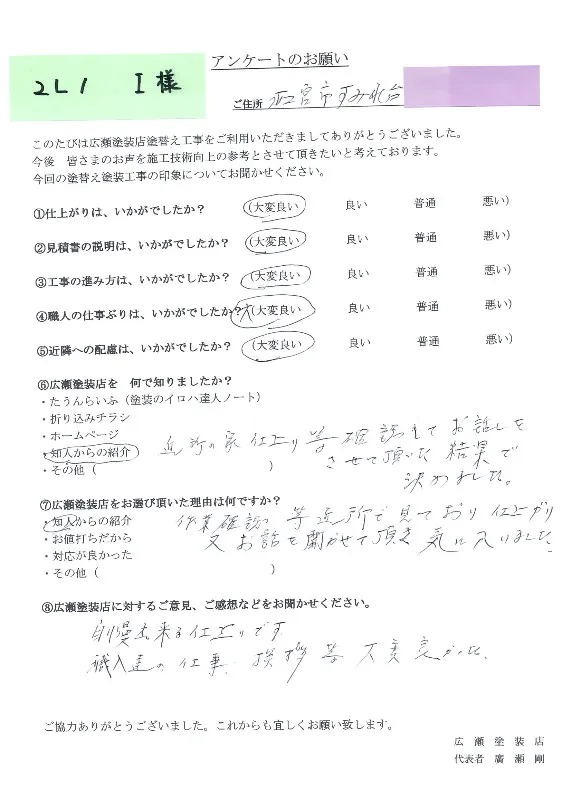 アンケートのお願い
2L1 I様
ご住所 宮市すみれ台
このたびは広瀬塗装店塗替え工事をご利用いただきましてありがとうございました。
今後 皆さまのお声を施工技術向上の参考とさせて頂きたいと考えております。
今回の塗替え塗装工事の印象についてお聞かせください。
①仕上がりは、いかがでしたか? (大変良い 良い 普通 悪い)
②見積書の説明は、いかがでしたか? (大変良い 良い 普通 悪い)
③工事の進み方は、いかがでしたか? (大変良い 良い 普通 悪い)
④職人の仕事ぶりは、いかがでしたか? (大変良い 良い 普通 悪い)
⑤近隣への配慮は、いかがでしたか? (大変良い 良い 普通 悪い)
⑥広瀬塗装店を 何で知りましたか?
・たうんらいふ(塗装のイロハ達人ノート)
・折り込みチラシ
・ホームページ
・知人からの紹介
・その他( )
近所の家仕上り等確認してお話しを
させて頂いた結果で
決めました。
⑦広瀬塗装店をお選び頂いた理由は何ですか?
・知人からの紹介
・お値打ちだから
・対応が良かった
・その他(
作業確認等近所で見ており仕上がり
又お話を聞かせて頂き気に入りました
⑧広瀬塗装店に対するご意見、ご感想などをお聞かせください。
自慢出来る仕上りです
職人達の仕事、挨拶等大変良かった。
ご協力ありがとうございました。これからも宜しくお願い致します。
広瀬塗装店
代表者 廣瀬剛